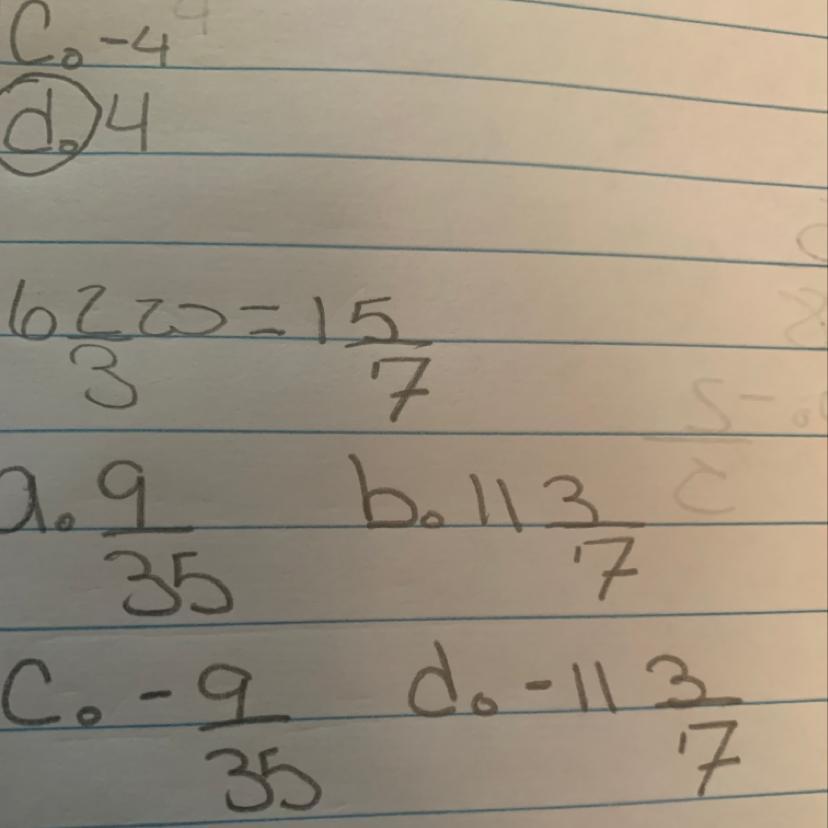 C. -4
d. 4
6 2/3 w = 1 5/7
a. 9/35 b. 11 3/7
C. - 9/35 d. -11 3/7